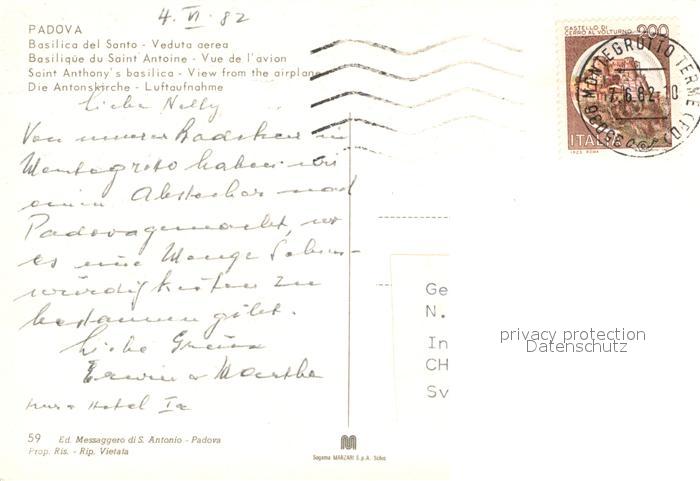 4. VI. 82
PADOVA
Basilica del Santo - Veduta aerea
Basilique du Saint Antoine - Vue de l'avion
Saint Anthony's basilica - View from the airplane
Die Antonskirche - Luftaufnahme
Liebe Nelly
Von unserer Badekur in
Montegroto haben wir
einen Abstecher nach
Padova gemacht, wo
es eine Menge Sehens-
würdigkeiten zu
bestaunen gibt.
Liebe Grüsse
Erwin & Martha
Hotel
59 Ed. Messaggero di S. Antonio - Padova
Prop. Ris. - Rip. Vietata
Sogema MARZARI S.p.A. Schio
CASTELLO DI
CERRO AL VOLTURNO 200
ITALIA
MONTEGROTTO TERME (PD)
35036
7.6.82-10
Ge
N.
In
CH
Sv
privacy protection
Datenschutz